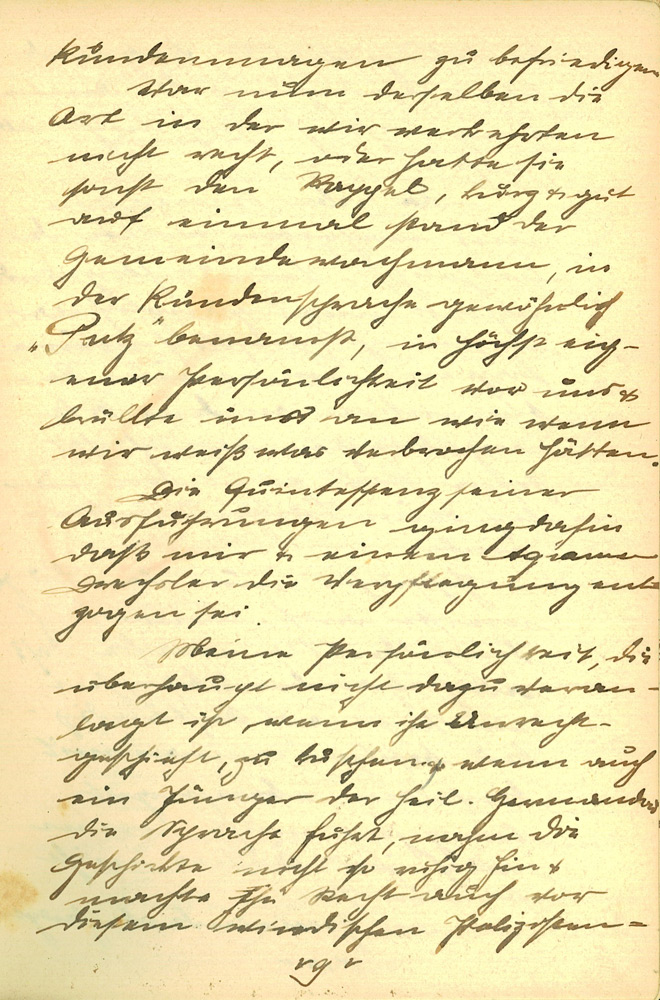 Kundenmagen zu befriedigen
War nun derselben die
Art in der wir verkehrten
nicht recht, oder hatte sie
sonst den Rappel, kurz & gut
auf einmal stand der
Gemeindewachmann, in
der Kundensprache gewöhnlich
„Putz" benannst, in höchst eig-
ener Persönlichkeit vor uns &
brüllte uns an wie wenn
wir weiß was verbrochen hätten.
Die Quintessenz seiner
Ausführungen ging dahin
daß mir & einem
Drechsler die Verpflegung ent-
zogen sei.
Meine Persönlichkeit, die
überhaupt nicht dazu veran-
lagt ist, wenn ihr Unrecht
geschieht, zu kuschen & wenn auch
ein Jünger der heil. Hermandad
die Sprache führt, nahm die
Geschichte nicht so ruhig hin &
machte ihr Recht auch vor
diesem windischen Polizisten-